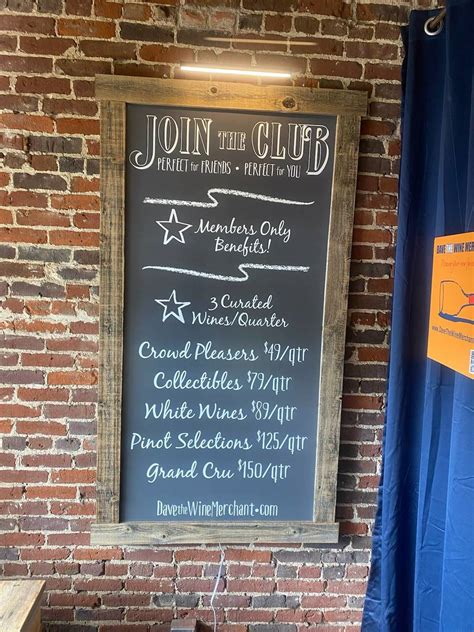 JOIN THE CLUB
PERFECT for FRIENDS • PERFECT for YOU
Members Only
Benefits!
3 Curated
Wines/Quarter
Crowd Pleasers $49/qtr
Collectibles $79/qtr
White Wines $89/qtr
Pinot Selections $125/qtr
Grand Cru $150/qtr
DavetheWineMerchant.com
DAVE THE WINE MERCH
www.DaveTheWineMerchant